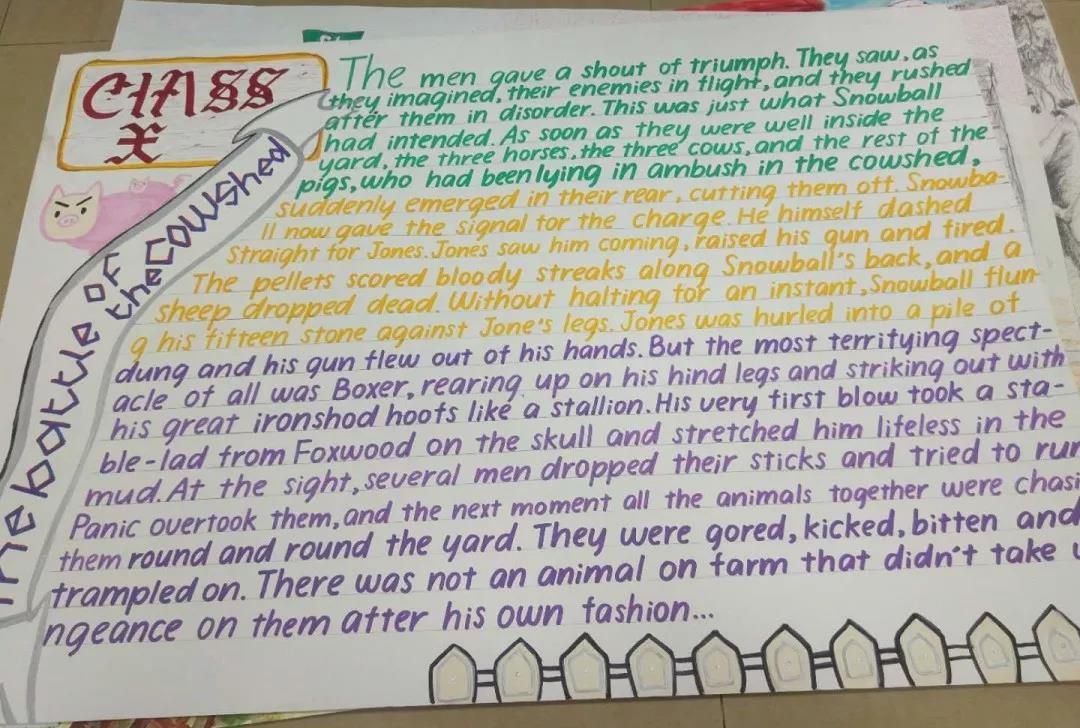 CLASS
X
The battle of
the Cowshed
The men gave a shout of triumph. They saw, as
they imagined, their enemies in flight, and they rushed
after them in disorder. This was just what Snowball
had intended. As soon as they were well inside the
yard, the three horses, the three cows, and the rest of the
pigs, who had been lying in ambush in the cowshed,
suddenly emerged in their rear, cutting them off. Snowba-
ll now gave the signal for the charge. He himself dashed
Straight for Jones. Jones saw him coming, raised his gun and fired.
The pellets scored bloody streaks along Snowball's back, and a
sheep dropped dead. Without halting for an instant, Snowball flun-
g his fifteen stone against Jone's legs. Jones was hurled into a pile of
dung and his gun flew out of his hands. But the most terrifying spect-
acle of all was Boxer, rearing up on his hind legs and striking out with
his great ironshod hoofs like a stallion. His very first blow took a sta-
ble-lad from Foxwood on the skull and stretched him lifeless in the
mud. At the sight, several men dropped their sticks and tried to run
Panic overtook them, and the next moment all the animals together were chasi
them round and round the yard. They were gored, kicked, bitten and
trampled on. There was not an animal on farm that didn't take
ngeance on them after his own fashion...